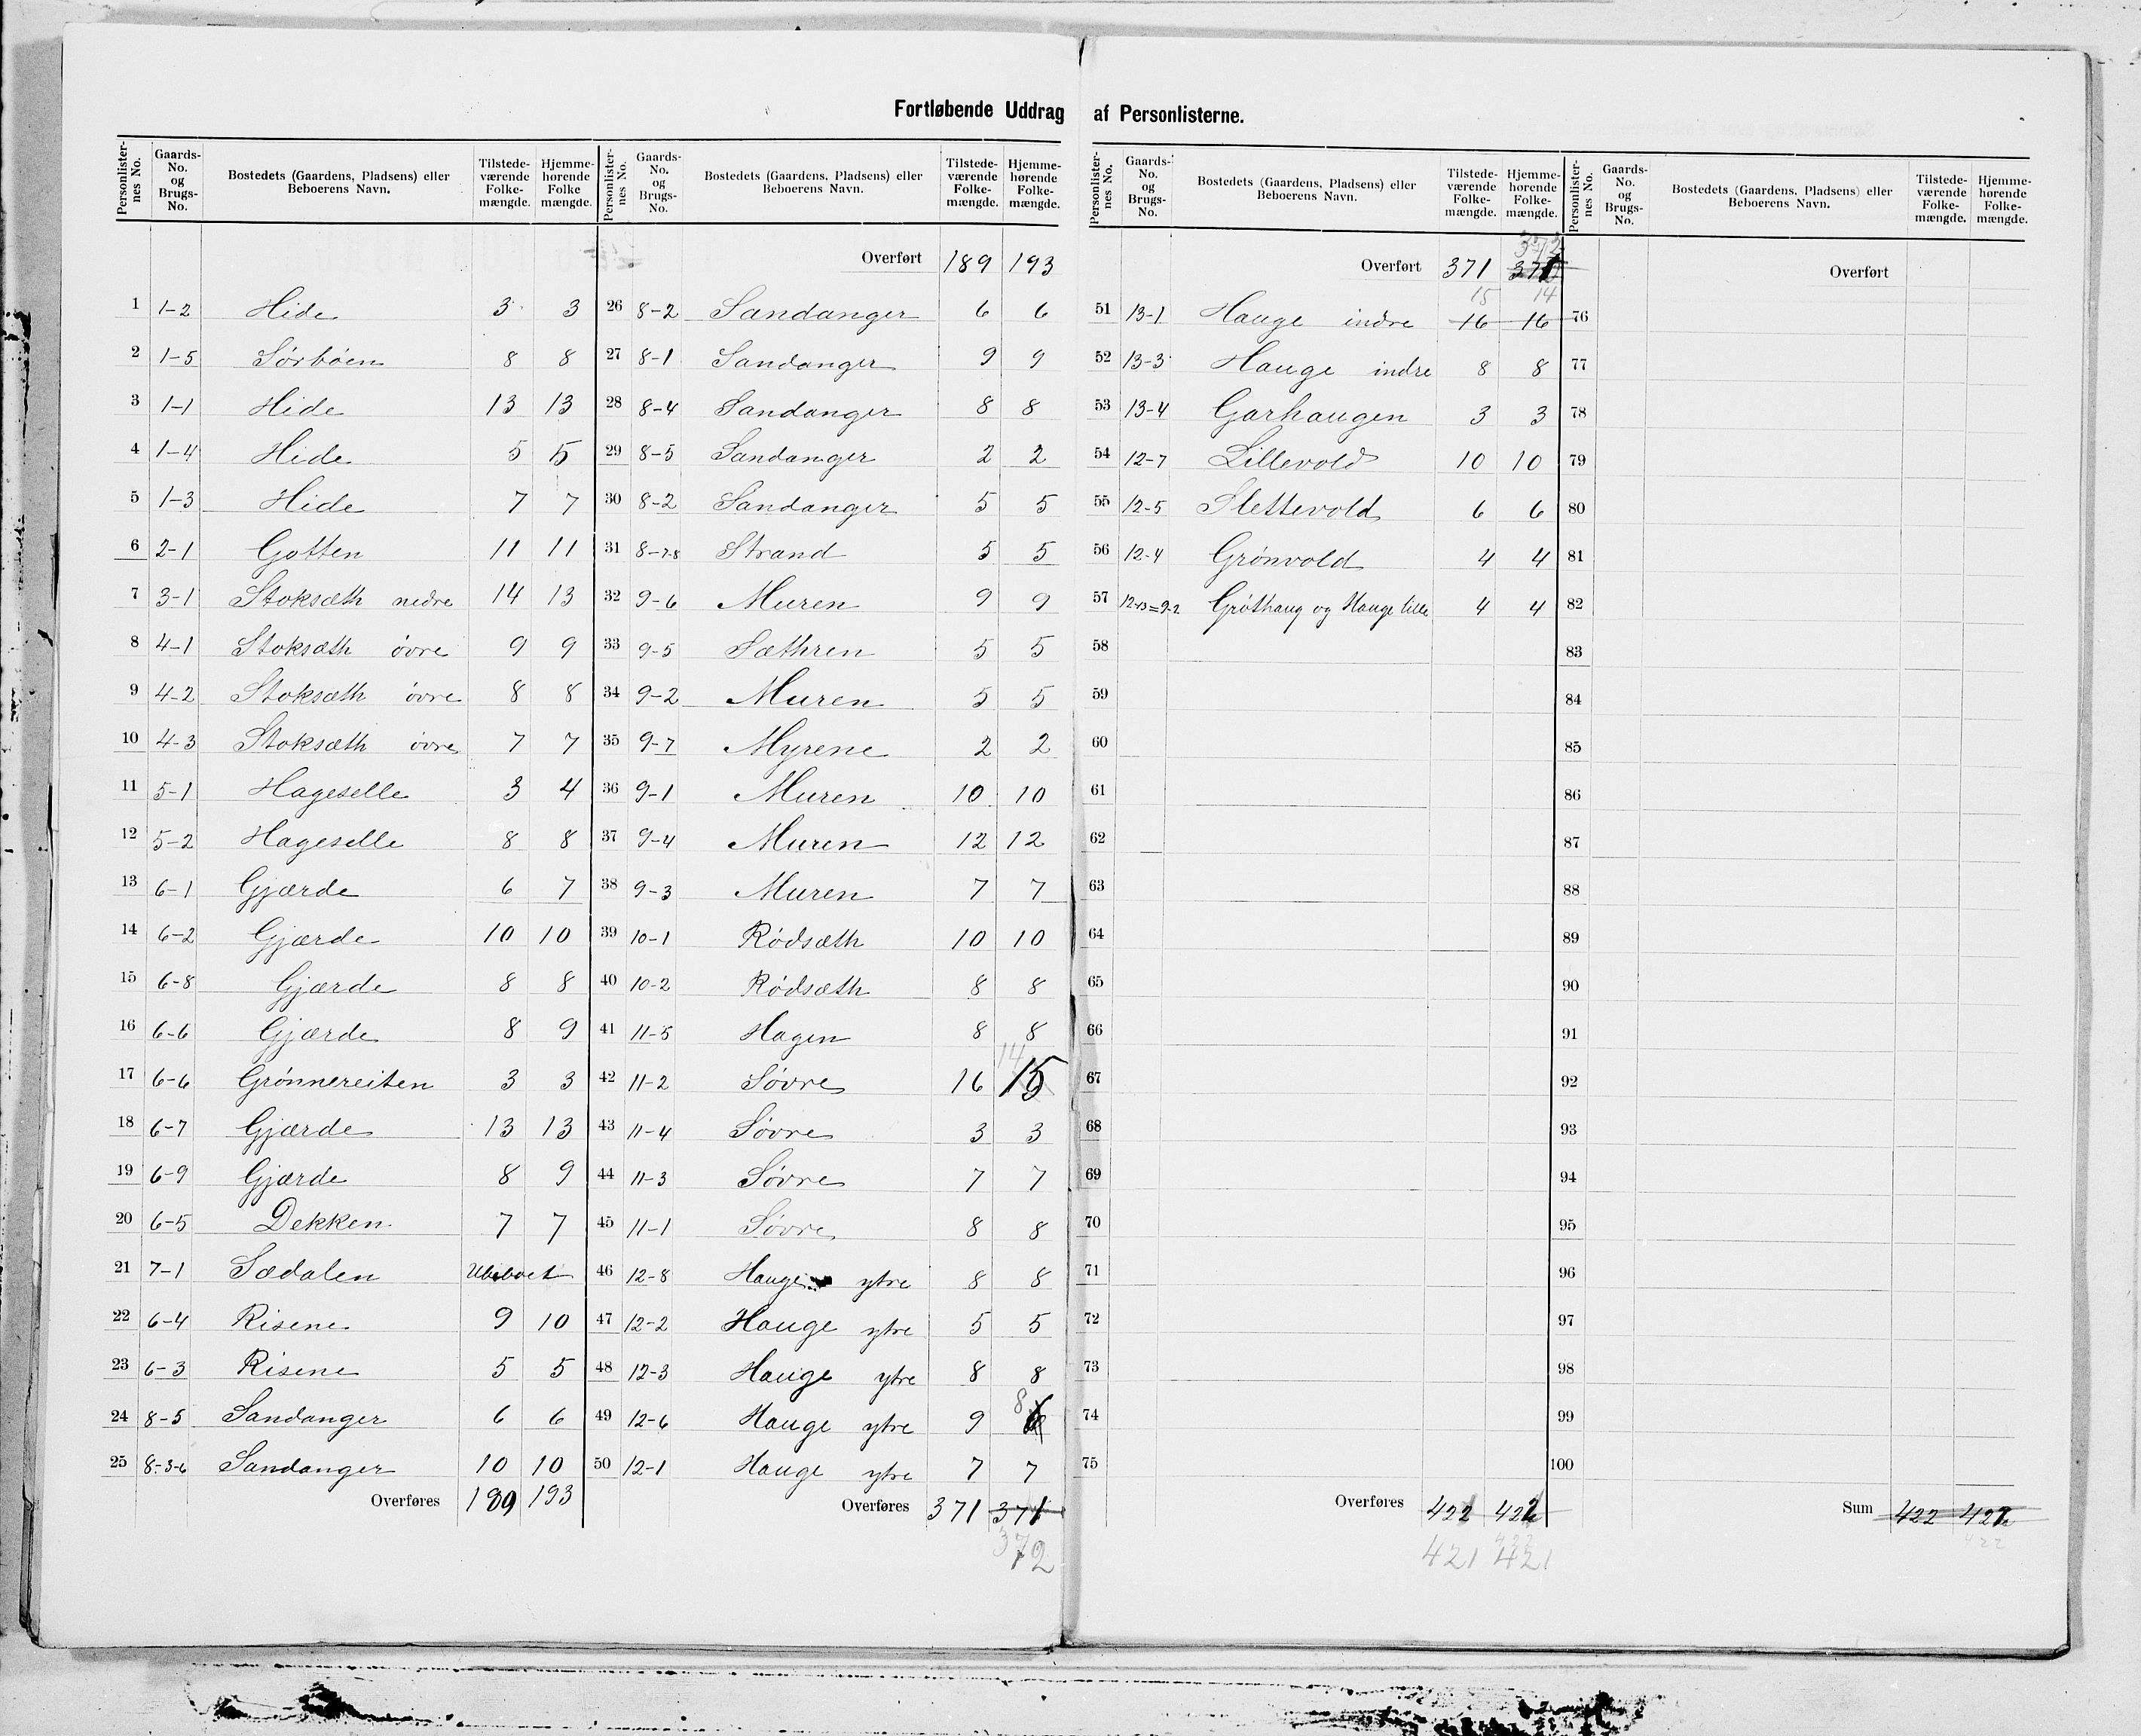 Fortløbende Uddrag af Personlisterne.
Personlister-nes No. | Gaards-No. og Brugs-No. | Bostedets (Gaardens, Pladsens) eller Beboerens Navn. | Tilstede-værende Folke-mængde. | Hjemme-hørende Folke mængde.
1 1-2 Hide 3 3
2 1-5 Sørbøen 8 8
3 1-1 Hide 13 13
4 1-4 Hide 5 5
5 1-3 Hide 7 7
6 2-1 Gotten 11 11
7 3-1 Stoksæth nedre 14 13
8 4-1 Stoksæth øvre 9 9
9 4-2 Stoksæth øvre 8 8
10 4-3 Stoksæth øvre 7 7
11 5-1 Hageselle 3 4
12 5-2 Hageselle 8 8
13 6-1 Gjærde 6 7
14 6-2 Gjærde 10 10
15 6-8 Gjærde 8 8
16 6-6 Gjærde 8 9
17 6-6 Grønnereiten 3 3
18 6-7 Gjærde 13 13
19 6-9 Gjærde 8 9
20 6-5 Dekken 7 7
21 7-1 Sædalen Ubeboet
22 6-4 Risene 9 10
23 6-3 Risene 5 5
24 8-5 Sandanger 6 6
25 8-3-6 Sandanger 10 10
Overføres 189 193
Personlister-nes No. | Gaards-No. og Brugs-No. | Bostedets (Gaardens, Pladsens) eller Beboerens Navn. | Tilstede-værende Folke-mængde. | Hjemme-hørende Folke-mængde.
Overført 189 193
26 8-2 Sandanger 6 6
27 8-1 Sandanger 9 9
28 8-4 Sandanger 8 8
29 8-5 Sandanger 2 2
30 8-2 Sandanger 5 5
31 8-7-8 Strand 5 5
32 9-6 Muren 9 9
33 9-5 Sæthren 5 5
34 9-2 Muren 5 5
35 9-7 Myrene 2 2
36 9-1 Muren 10 10
37 9-4 Muren 12 12
38 9-3 Muren 7 7
39 10-1 Rødsæth 10 10
40 10-2 Rødsæth 8 8
41 11-5 Hagen 8 8
14
42 11-2 Søvre 16 15
43 11-4 Søvre 3 3
44 11-3 Søvre 7 7
45 11-1 Søvre 8 8
46 12-8 Hauge ytre 8 8
47 12-2 Hauge ytre 5 5
48 12-3 Hauge ytre 8 8
49 12-6 Hauge ytre 9 8
50 12-1 Hauge ytre 7 7
Overføres 371 371
372
Personlister-nes No. | Gaards-No. og Brugs-No. | Bostedets (Gaardens, Pladsens) eller Beboerens Navn. | Tilstede-værende Folke-mængde. | Hjemme-hørende Folke-mængde.
372
Overført 371 371
15 14
51 13-1 Hauge indre 16 16
52 13-3 Hauge indre 8 8
53 13-4 Garhaugen 3 3
54 12-7 Lillevold 10 10
55 12-5 Slettevold 6 6
56 12-4 Grønvold 4 4
57 12-13=9-2 Grøthaug og Hauge lille 4 4
58
59
60
61
62
63
64
65
66
67
68
69
70
71
72
73
74
75
Overføres 422 422
422
421 421
Personlister-nes No. | Gaards-No. og Brugs-No. | Bostedets (Gaardens, Pladsens) eller Beboerens Navn. | Tilstede-værende Folke-mængde. | Hjemme-hørende Folke-mængde.
Overført
76
77
78
79
80
81
82
83
84
85
86
87
88
89
90
91
92
93
94
95
96
97
98
99
100
Sum 422 422
422